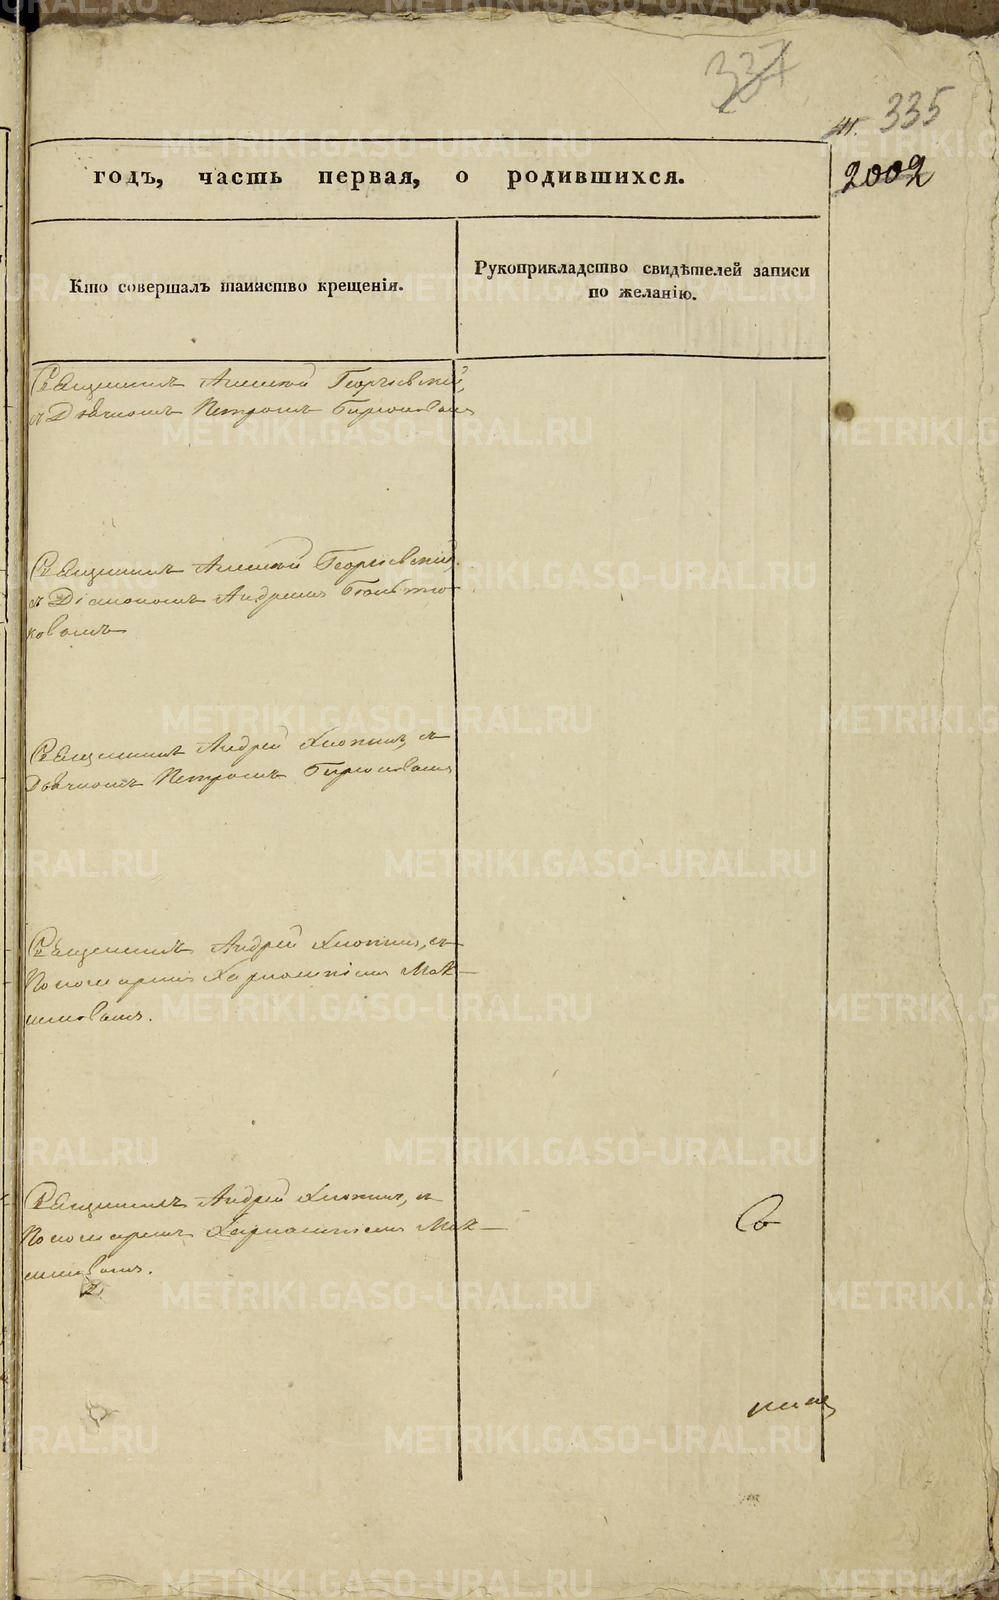 337
335
2002
годъ, часть первая, о родившихся.
Кто совершалъ таинство крещенія.
Рукоприкладство свидѣтелей записи
по желанію.
Священникъ Алексей Георгіевскій,
съ Дьячкомъ Петромъ Бирюковымъ
Священникъ Алексей Георгіевскій
съ Діакономъ Андреемъ
ковымъ
Священникъ Андрей Хлопинъ, съ
Дьячкомъ Петромъ Бирюковымъ
Священникъ Андрей Хлопинъ, съ
Пономаремъ Харлампіемъ Мак-
шиновымъ.
Священникъ Андрей Хлопинъ, съ
Пономаремъ Харлампіемъ Мак-
METRIKI.GASO-URAL.RU